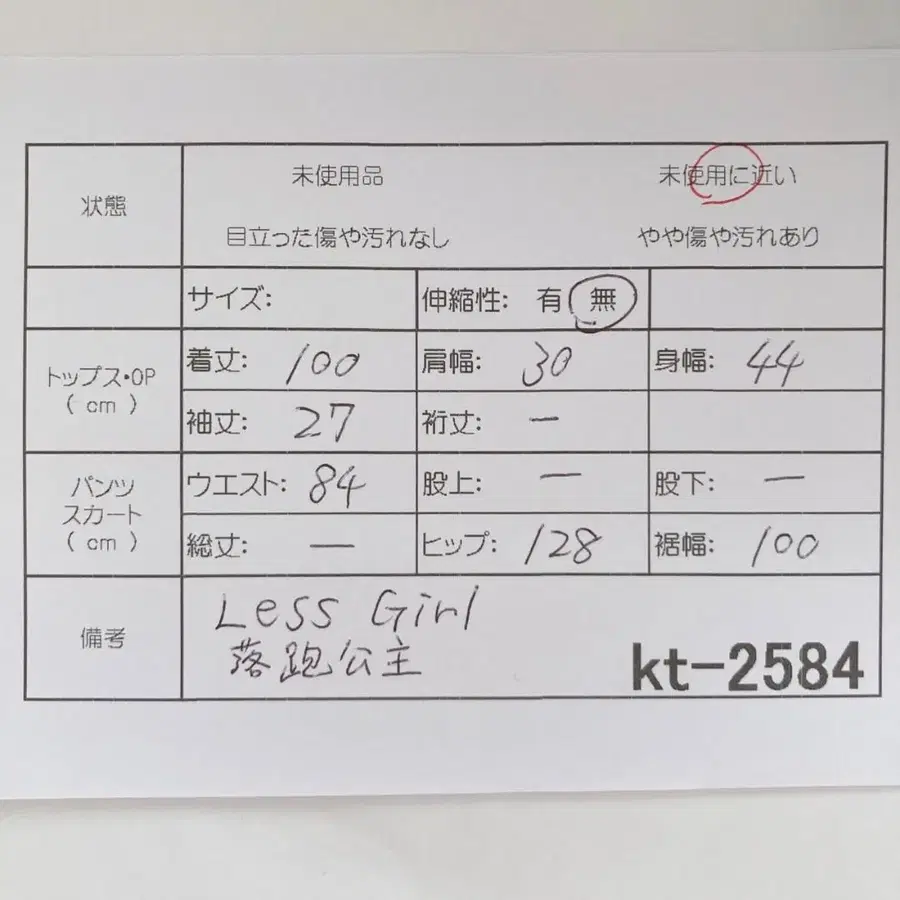 状態
未使用品 未使用に近い
目立った傷や汚れなし やや傷や汚れあり
サイズ: 伸縮性: 有 無
トップス・OP
( cm )
着丈: 100 肩幅: 30 身幅: 44
袖丈: 27 裄丈: ー
パンツ
スカート
( cm )
ウエスト: 84 股上: ー 股下: ー
総丈: ー ヒップ: 128 裾幅: 100
備考
Less Girl
落跑公主
kt-2584